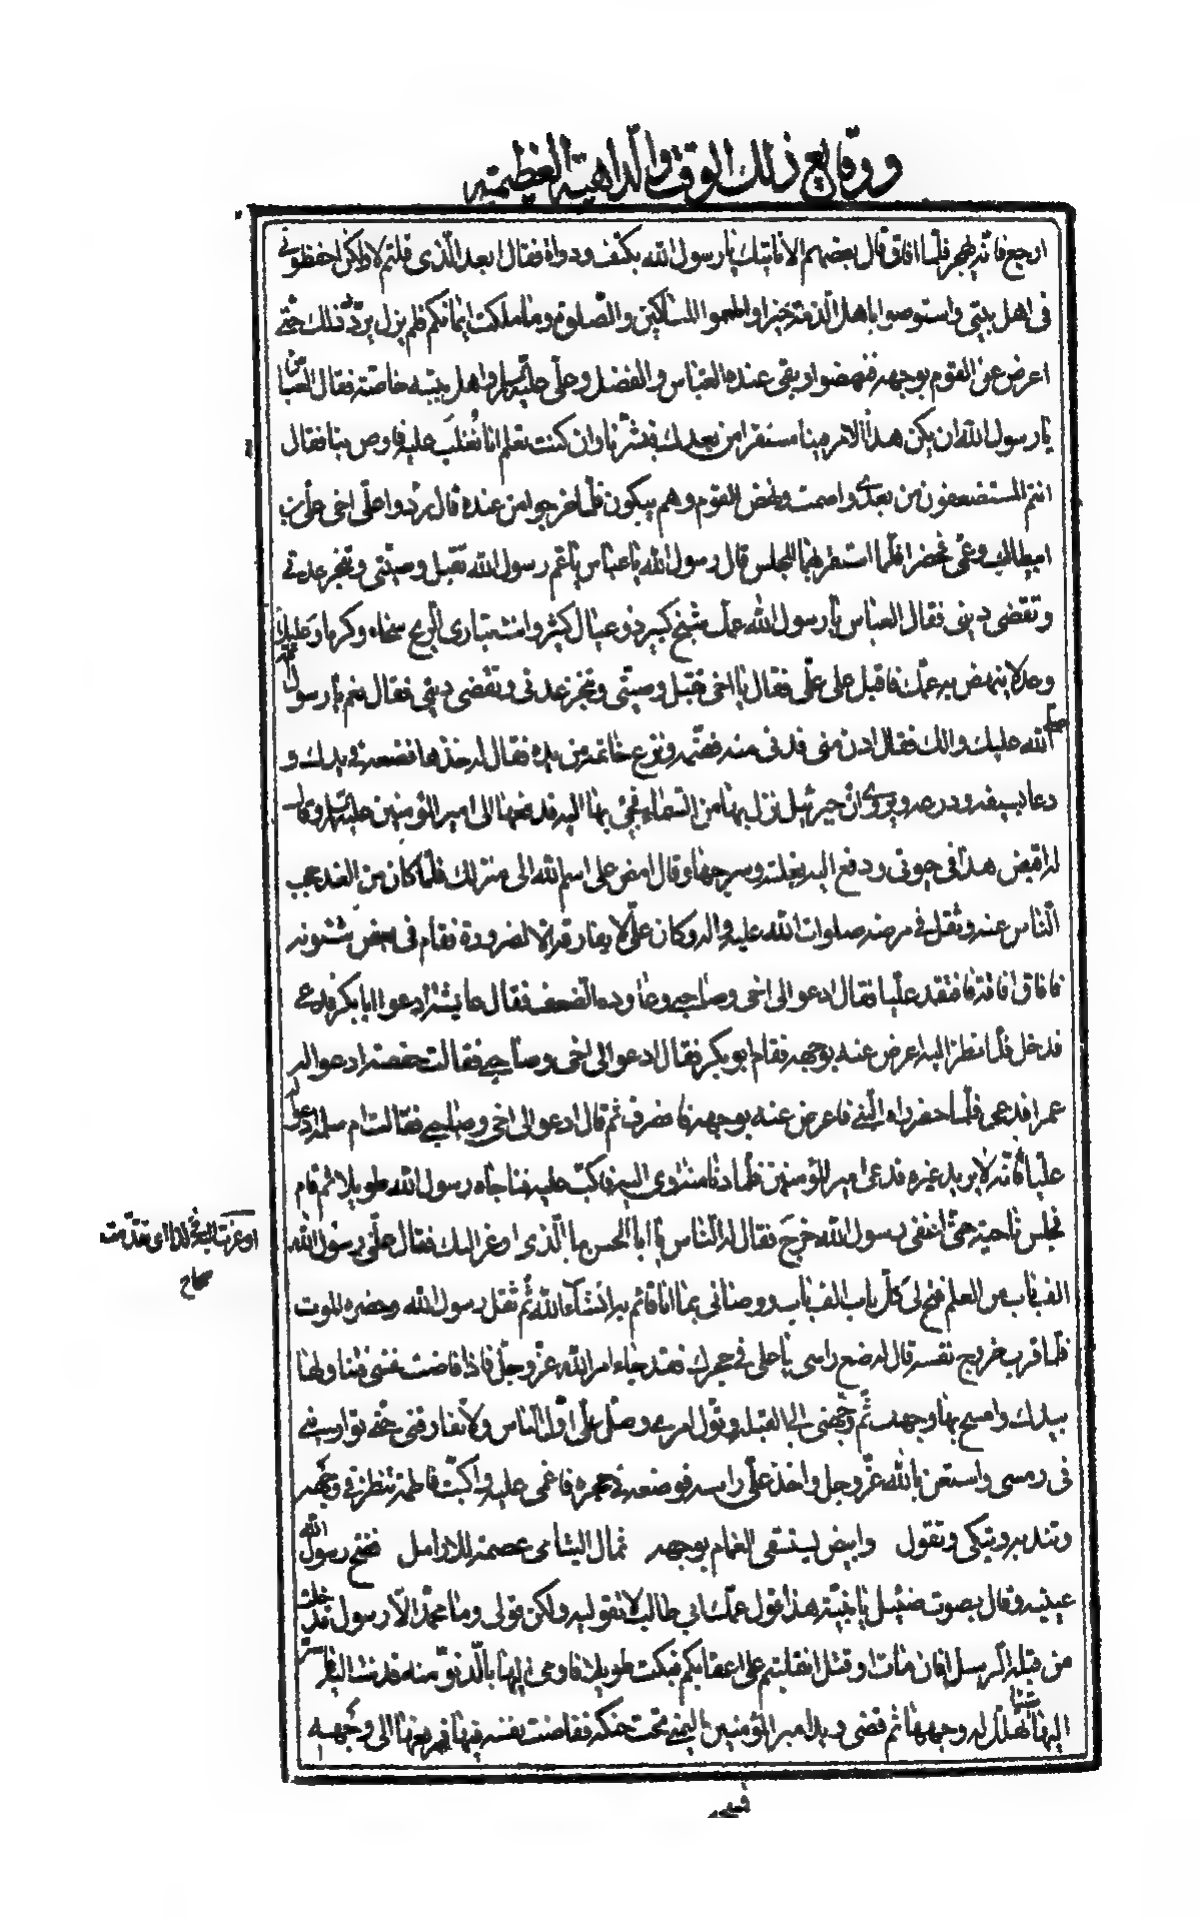 ووقايع ذلك الوقت والداهية العظيمة
ارجع فانه يهجر فلما افاق قال بعضهم الا ناتيك يا رسول الله بكتف ودواة فقال ابعد الذي قلتم لا ولكن احفظوني
في اهل بيتي واستوصوا باهل الذمة خيرا واطعموا المساكين والصلوة وما ملكت ايمانكم فلم يزل يردد ذلك حتى
اعرض عن القوم بوجهه فنهضوا وبقي عنده العباس والفضل وعلي عليه السلم واهل بيته خاصة فقال العباس
يا رسول الله ان يكن هذا الامر فينا مستقرا من بعدك فبشرنا وان كنت تعلم انا نُغلَب عليه فاوص بنا فقال
انتم المستضعفون من بعدي واصمت ونهض القوم وهم يبكون فلما خرجوا من عنده قال ردوا علي اخي علي بن
ابيطالب وعمي فحضرا فلما استقر بهما المجلس قال رسول الله يا عباس يا عم رسول الله تقبل وصيتي وتنجز عدتي
وتقضي ديني فقال العباس يا رسول الله عمك شيخ كبير ذو عيال كثير وانت تباري الريح سخاء وكرما وعليك
وعد لا ينهض به عمك فاقبل على علي فقال يا اخي تقبل وصيتي وتنجز عدتي وتقضي ديني فقال نعم يا رسول
الله صلى الله عليك والك فقال ادن مني فدنى منه فضمه ونزع خاتمه من يده فقال له خذ هذا فضعه في يدك و
دعا بسيفه ودرعه ويروى ان جبرئيل نزل بها من السماء فجئ بها اليه فدفعها الى امير المؤمنين عليه السلم وقال
له اقبض هذا في حيوتي ودفع اليه بغلته وسرجها وقال امض على اسم الله الى منزلك فلما كان من الغد حجب
الناس عنه وثقل في مرضه صلوات الله عليه واله وكان علي لا يفارقه الا لضرورة فقام في بعض شئونه
فافاق افاقة فافتقد عليا فقال ادعوا لي اخي وصاحبي وعاوده الضعف فقال عايشة ادعوا ابا بكر فدعي
فدخل فلما نظر اليه اعرض عنه بوجهه فقام ابو بكر فقال ادعوا لي اخي وصاحبي فقالت حفصة ادعوا له
عمر فدعي فلما حضر راه النبي فاعرض عنه بوجهه فانصرف ثم قال ادعوا لي اخي وصاحبي فقالت ام سلمة ادعوا له
عليا فانه لا يريد غيره فدعي امير المؤمنين فلما دنا منه اومى اليه فاكب عليه فناجاه رسول الله طويلا ثم قام
فجلس ناحية حتى اغفى رسول الله خرج فقال له الناس يا ابا الحسن ما الذي اوعز اليك فقال علمني رسول الله
الف باب من العلم فتح لي كل باب الف باب ووصاني بما انا قائم به انشاء الله ثم ثقل رسول الله وحضره الموت
فلما قرب خروج نفسه قال له ضع راسي يا علي في حجرك فقد جاء امر الله عز وجل فاذا فاضت نفسي فتناولها
بيدك وامسح بها وجهك ثم وجهني الى القبلة وتول امري وصل علي اول الناس ولا تفارقني حتى تواريني
في رمسي واستعن بالله عز وجل واخذ علي راسه فوضعه في حجره فاغمي عليه واكبت فاطمة تنظر في وجهه
وتندبه وتبكي وتقول وابيض يستسقى الغمام بوجهه ثمال اليتامى عصمة للارامل ففتح رسول الله
عينيه وقال بصوت ضئيل يا بنية هذا قول عمك ابي طالب لا تقوليه ولكن قولي وما محمد الا رسول قد خلت
من قبله الرسل افان مات او قتل انقلبتم على اعقابكم فبكت طويلا فاومى اليها بالدنو منه فدنت اليه فاسر
اليها شيئا تهلل له وجهها ثم قضى ويد امير المؤمنين اليمنى تحت حنكه ففاضت نفسه فيها فرفعها الى وجهه
اوعزت اليه في كذا اي تقدمت
صحاح